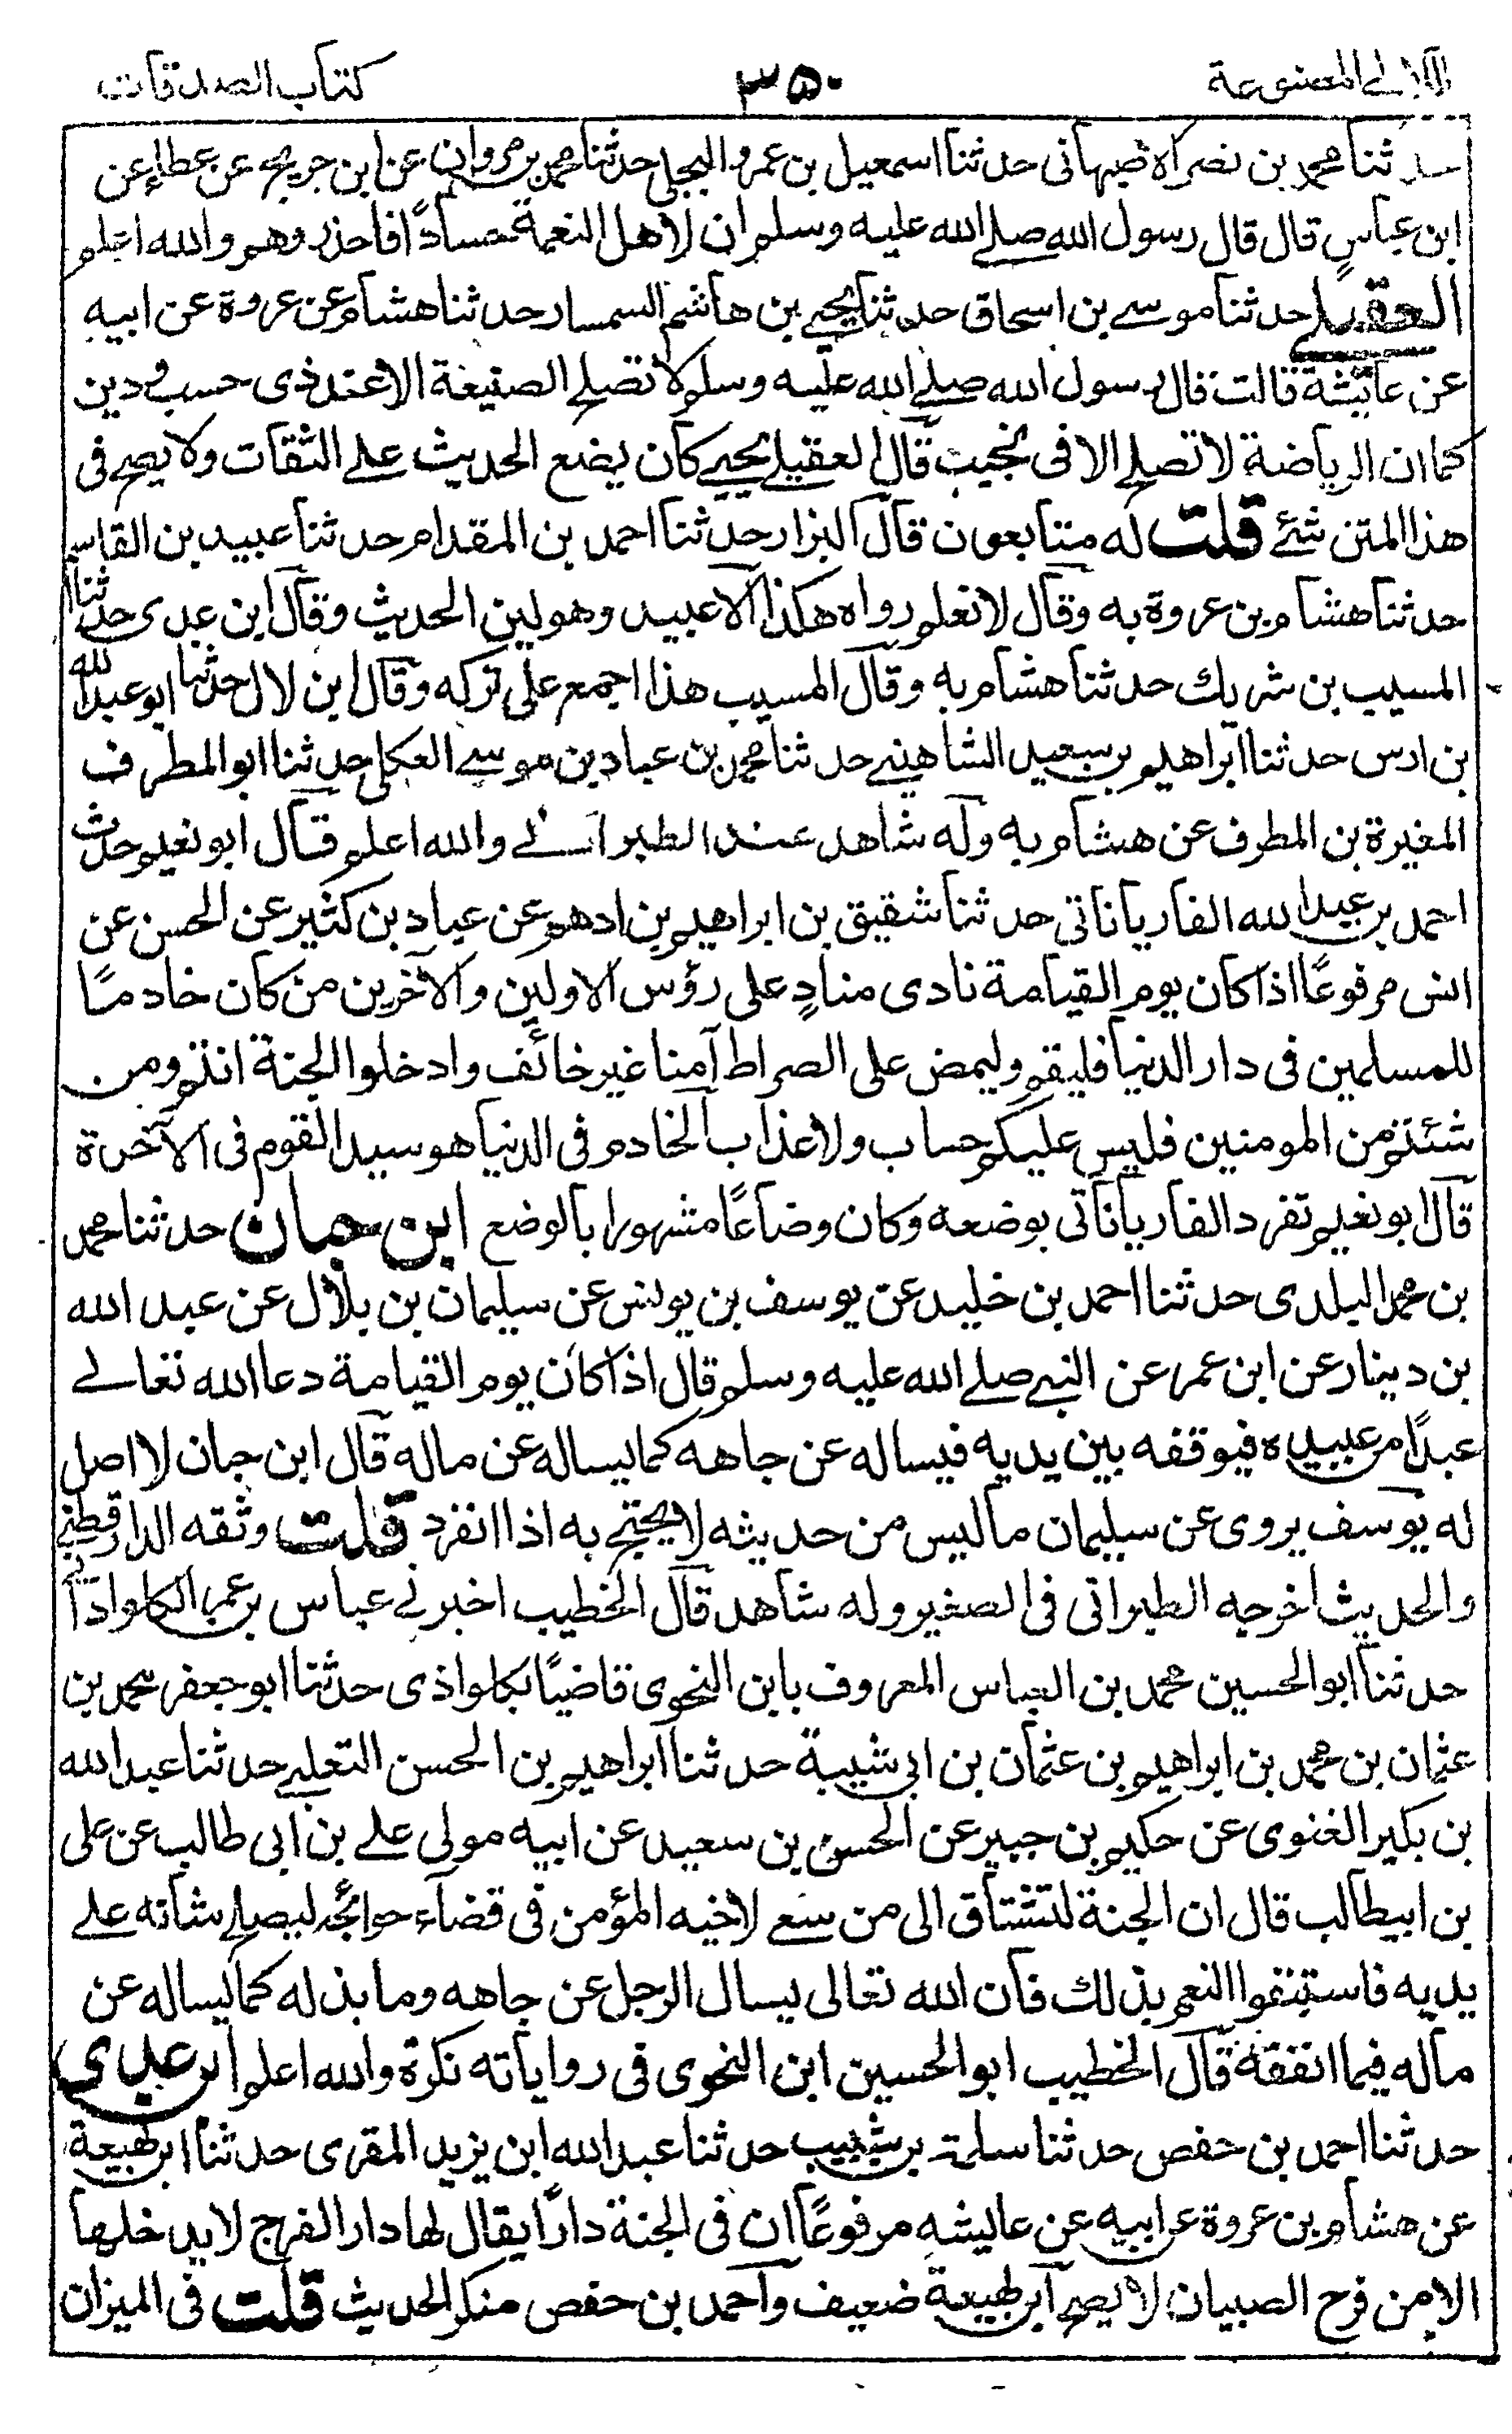 اللآلي المصنوعة ٣٥٠ كتاب الصدقات
حدثنا محمد بن نصر الاصبهانى حدثنا اسمعيل بن عمرو البجلى حدثنا محمد بن مروان عن ابن جريج عن عطاء عن
ابن عباسٍ قال قال رسول الله صلے الله عليه وسلم ان لاهل النعمة حسادًا فاحذروهم والله اعلم
العقيلے حدثنا موسے بن اسحاق حدثنا يحيے بن هاشم السمسار حدثنا هشام عن عروة عن ابيه
عن عائشة قالت قال رسول الله صلے الله عليه وسلم لا تصلح الصنيعة الا عند ذى حسب و دين
كما ان الرياضة لا تصلح الا فى نجيب قال العقيلے يحيے كان يضع الحديث علے الثقات ولا يصح فى
هذا المتن شئے قلت له متابعون قال البزار حدثنا احمد بن المقدام حدثنا عبيد بن القاسم
حدثنا هشام بن عروة به وقال لا نعلم رواه هكذا الا عبيد وهو لين الحديث وقال ابن عدى حدثنا
المسيب بن شريك حدثنا هشام به وقال المسيب هذا اجمع على تركه وقال ابن لال حدثنا ابو عبد الله
بن ادس حدثنا ابراهيم بن سعيد الشاهينے حدثنا محمد بن عباد بن موسے العكلى حدثنا ابو المطرف
المغيرة بن المطرف عن هشام به وله شاهد عند الطبرانے والله اعلم قال ابو نعيم حدث
احمد بن عبد الله الفارياناتى حدثنا شقيق بن ابراهيم بن ادهم عن عباد بن كثير عن الحسن عن
انس مرفوعًا اذا كان يوم القيامة نادى منادٍ على رؤس الاولين والآخرين من كان خادمًا
للمسلمين فى دار الدنيا فليقم وليمض على الصراط آمنا غير خائف وادخلوا الجنة انتم ومن
شئتم من المومنين فليس عليكم حساب ولا عذاب الخادم فى الدنيا هو سيد القوم فى الآخرة
قال ابو نعيم تفرد الفارياناتى بوضعه وكان وضاعًا مشهورا بالوضع ابن حبان حدثنا محمد
بن محمد البلدى حدثنا احمد بن خليد عن يوسف بن يونس عن سليمان بن بلال عن عبد الله
بن دينار عن ابن عمر عن النبے صلے الله عليه وسلم قال اذا كان يوم القيامة دعا الله تعالے
عبدًا من عبيده فيوقفه بين يديه فيساله عن جاهه كما يساله عن ماله قال ابن حبان لا اصل
له يوسف يروى عن سليمان ما ليس من حديثه لا يحتج به اذا انفرد قلت وثقه الدارقطنے
والحديث اخرجه الطبرانى فى الصغير وله شاهد قال الخطيب اخبرنے عباس بن عمر الكلواذانى
حدثنا ابو الحسين محمد بن العباس المعروف بابن النحوى قاضيًا بكلواذى حدثنا ابو جعفر محمد بن
عثمان بن محمد بن ابراهيم بن عثمان بن ابى شيبة حدثنا ابراهيم بن الحسن التغلبے حدثنا عبد الله
بن بكير الغنوى عن حكيم بن جبير عن الحسن بن سعيد عن ابيه مولى علے بن ابى طالب عن على
بن ابيطالب قال ان الجنة لتشتاق الى من سعے لاخيه المؤمن فى قضاء حوائجه ليصلح شانه علے
يديه فاستبقوا النعم بذلك فان الله تعالى يسال الرجل عن جاهه وما بذله كما يساله عن
ماله فيما انفقه قال الخطيب ابو الحسين ابن النحوى فى رواياته نكرة والله اعلم ابن عدى
حدثنا احمد بن حفص حدثنا سلمة بن شبيب حدثنا عبد الله ابن يزيد المقرى حدثنا ابن لهيعة
عن هشام بن عروة عن ابيه عن عايشه مرفوعًا ان فى الجنة دارًا يقال لها دار الفرح لا يدخلها
الا من فرح الصبيان لا يصح ابن لهيعة ضعيف واحمد بن حفص منكر الحديث قلت فى الميزان